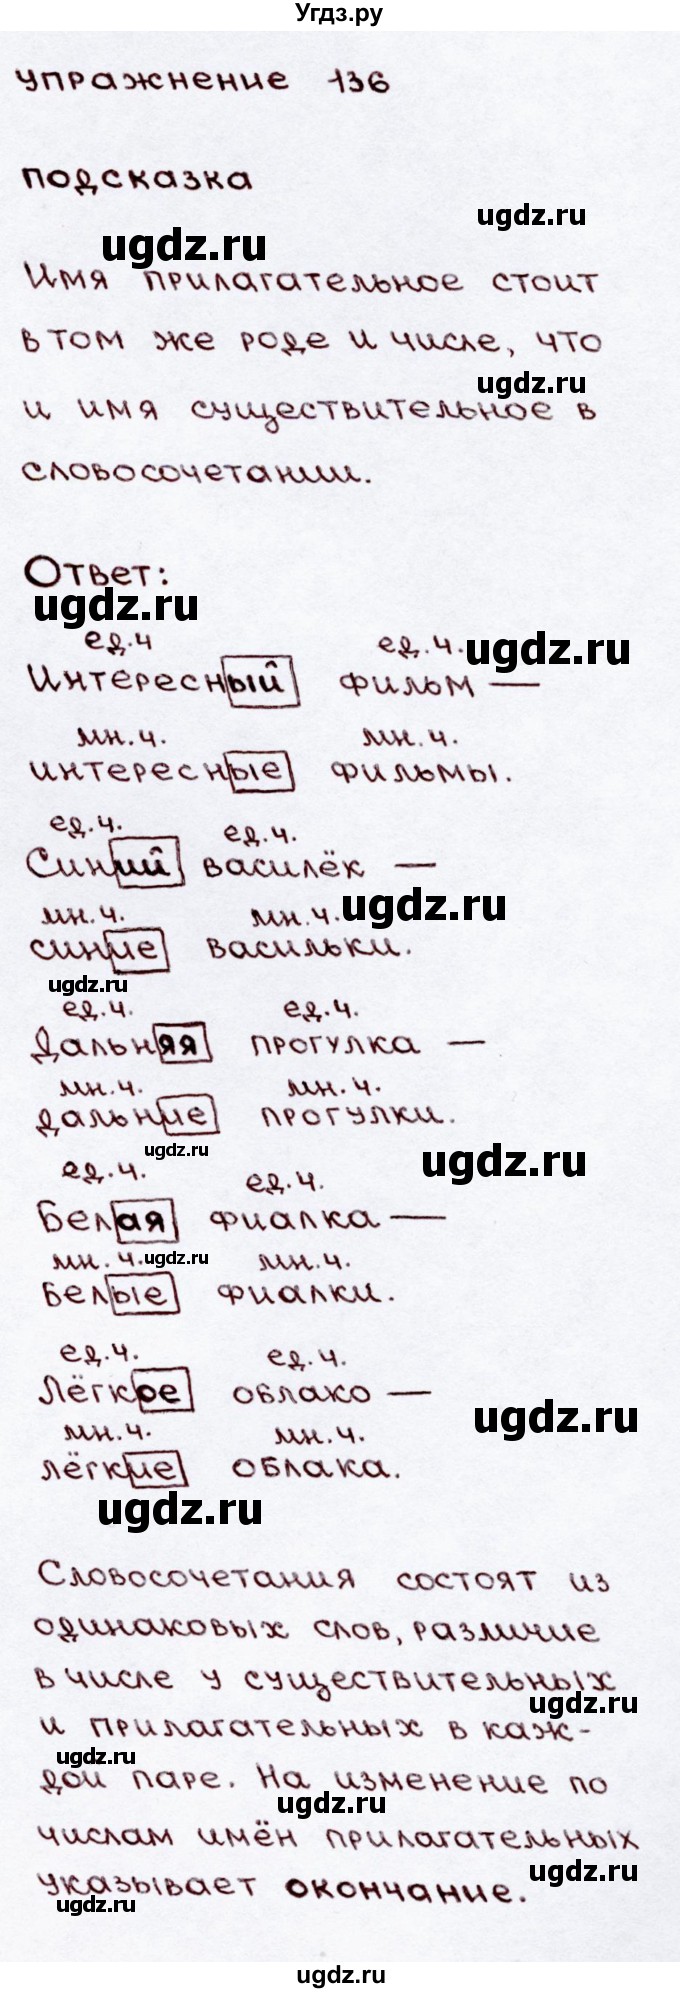 Угдз.ру
упражнение 136
подсказка
ugdz.ru
ugdz.ru
Имя прилагательное стоит
в том же роде и числе, что
ugdz.ru
и имя существительное в
словосочетании.
Ответ:
ugdz.ru
ед.ч ед.ч. ugdz.ru
Интересный фильм —
мн.ч. мн.ч.
интересные фильмы.
ед.ч. ед.ч.
Синий василёк —
мн.ч. мн.ч. ugdz.ru
синие васильки.
ugdz.ru
ед.ч. ед.ч.
Дальняя прогулка —
мн.ч. мн.ч.
дальние прогулки.
ugdz.ru ugdz.ru
ед.ч. ед.ч.
Белая фиалка —
мн.ч. ugdz.ru мн.ч.
белые фиалки.
ед.ч. ед.ч.
Лёгкое облако —
ugdz.ru
мн.ч. мн.ч.
лёгкие облака.
ugdz.ru
Словосочетания состоят из
одинаковых слов, различие
в числе у существительных
ugdz.ru
и прилагательных в каж-
ugdz.ru
дой паре. На изменение по
ugdz.ru
числам имён прилагательных
ugdz.ru
указывает окончание.
ugdz.ru
ugdz.ru